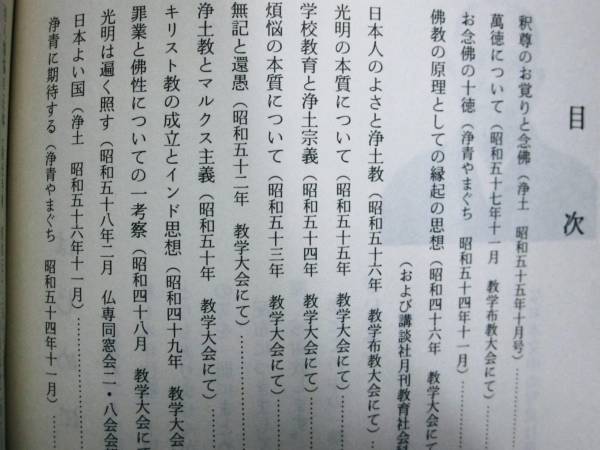 目次
釈尊のお覚りと念佛（浄土　昭和五十五年十月号）…………
萬徳について（昭和五十七年十一月　教学布教大会にて）……
お念佛の十徳（浄青やまぐち　昭和五十四年十一月）…………
佛教の原理としての縁起の思想（昭和四十六年　教学大会にて
（および講談社月刊教育社会科
日本人のよさと浄土教（昭和五十六年　教学布教大会にて）……
光明の本質について（昭和五十五年　教学大会にて）…………
学校教育と浄土宗義（昭和五十四年　教学大会にて）…………
煩悩の本質について（昭和五十三年　教学大会にて）…………
無記と還愚（昭和五十二年　教学大会にて）…………
浄土教とマルクス主義（昭和五十年　教学大会にて）…………
キリスト教の成立とインド思想（昭和四十九年　教学大会
罪業と佛性についての一考察（昭和四十八月　教学大会にて
光明は遍く照す（昭和五十八年二月　仏専同窓会二・八会会
日本よい国（浄土　昭和五十六年十一月）…………
浄青に期待する（浄青やまぐち　昭和五十四年十一月）…………